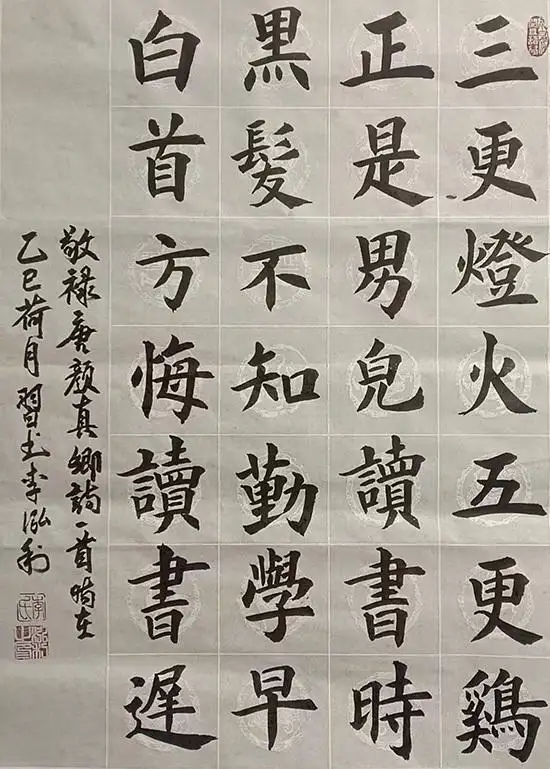 三更燈火五更鷄
正是男兒讀書時
黑髮不知勤學早
白首方悔讀書遲
敬禄唐顔真卿詩一首時在
乙巳荷月習書李泓利